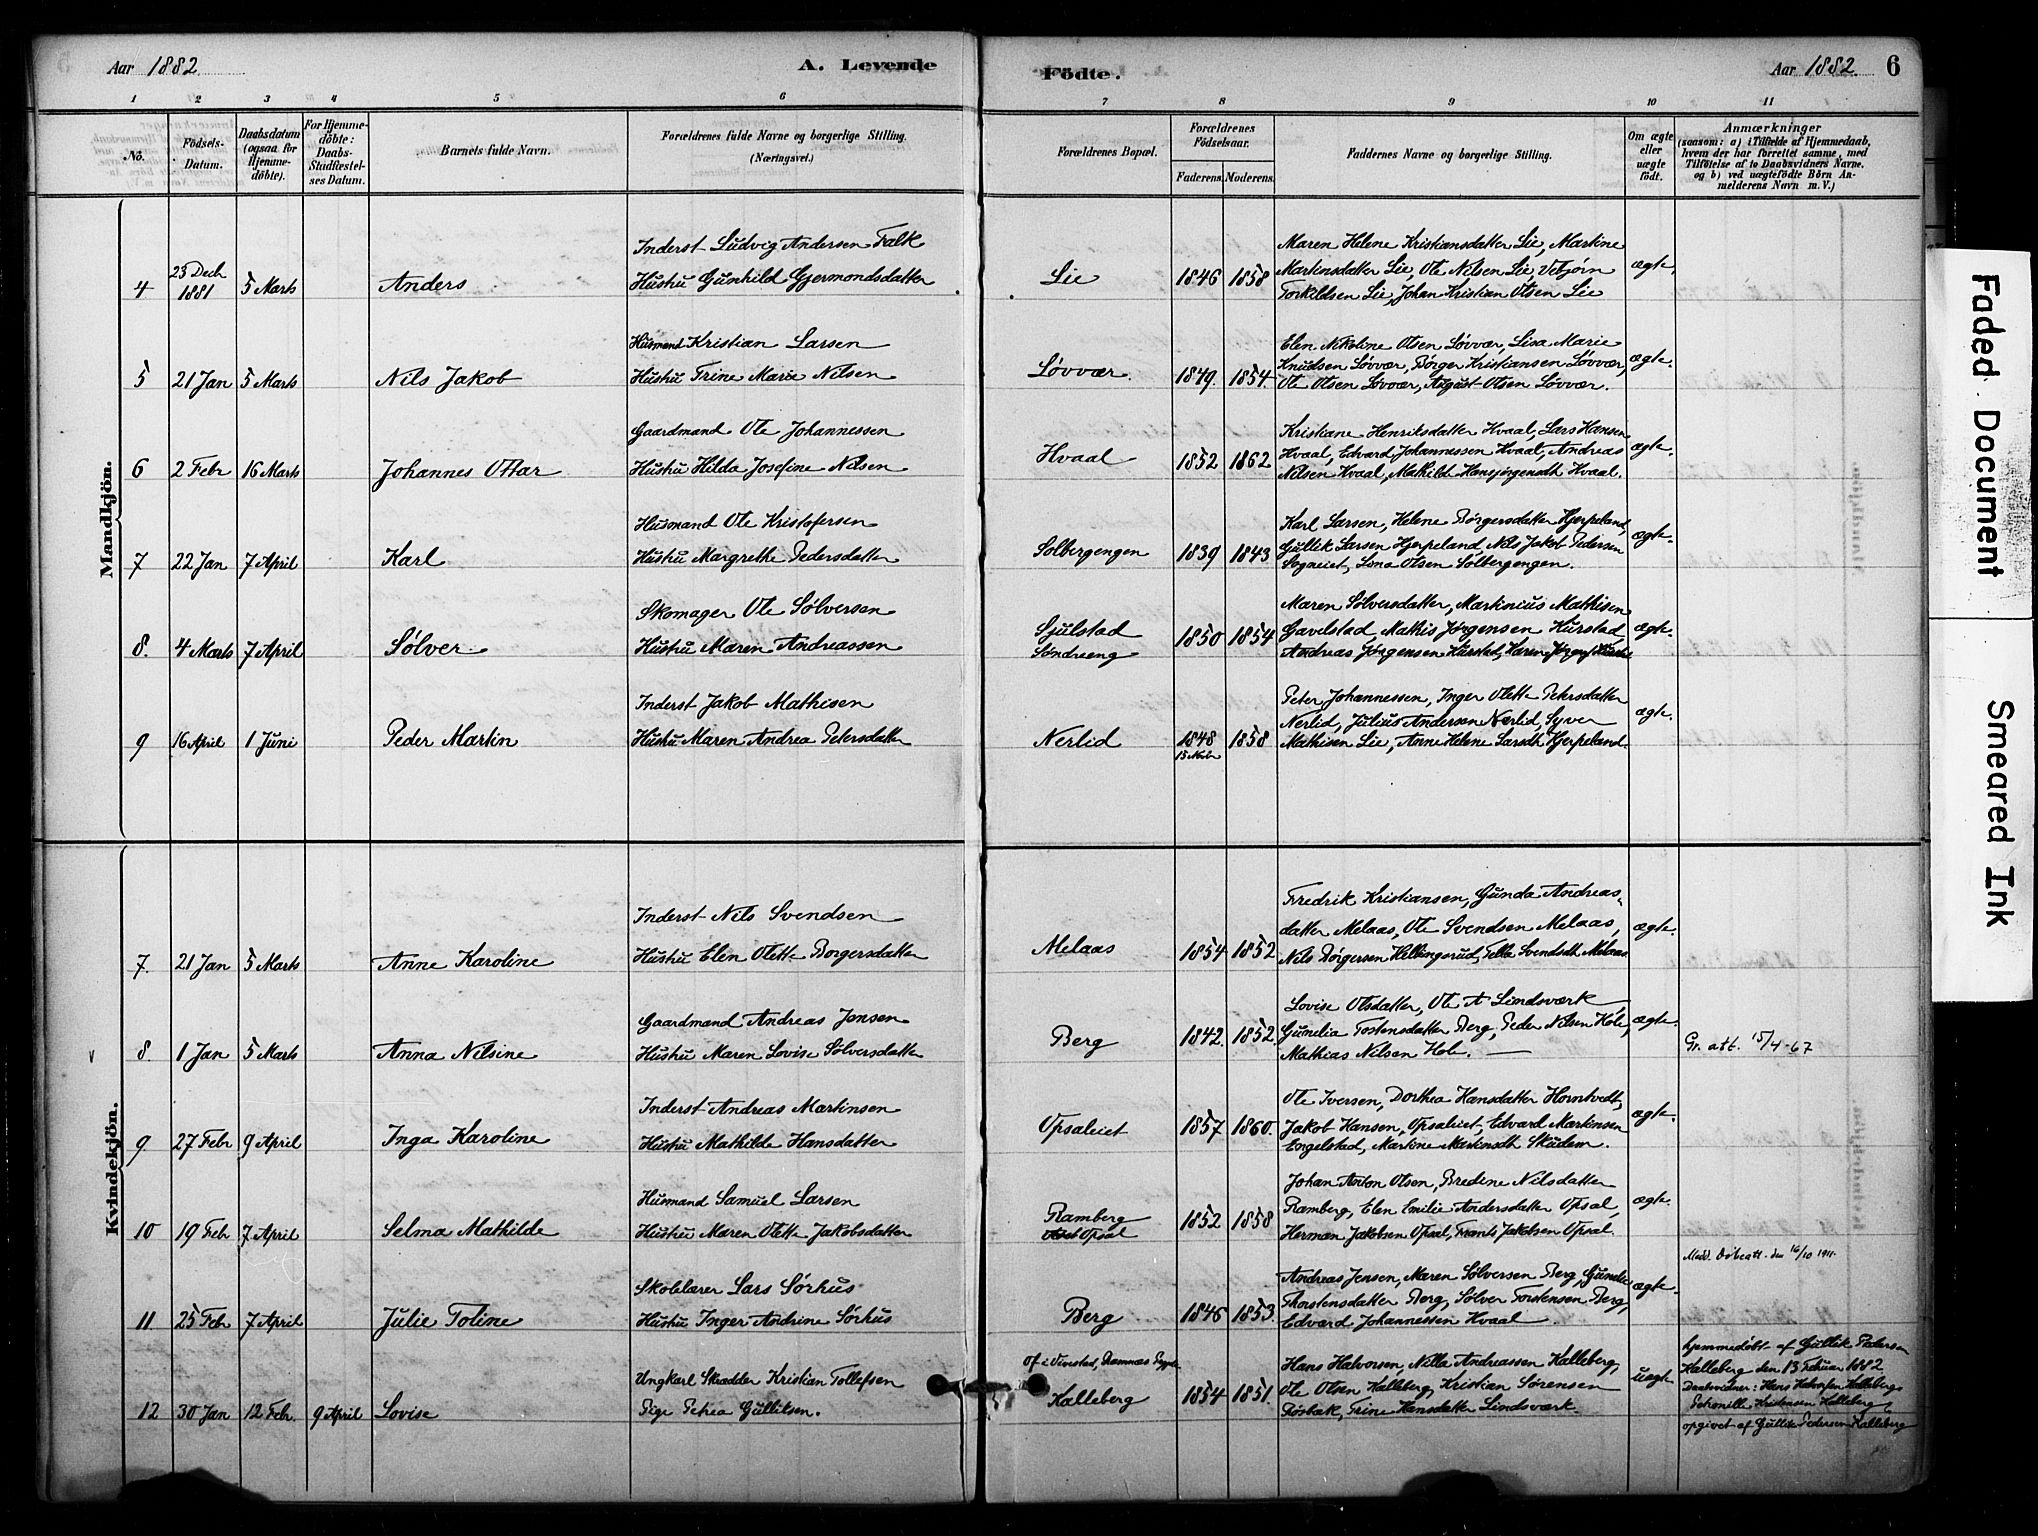 Aar 1882. A. Levende Födte. Aar 1882. 6
1 2 3 4 5 6 7 8 9 10 11
No. Födsels-Datum. Daabsdatum (ogsaa for Hjemme-döbte). For Hjemme-döbte: Daabs-Stadfæstel-ses Datum. Barnets fulde Navn. Forældrenes fulde Navne og borgerlige Stilling. (Næringsvei.) Forældrenes Bopæl. Forældrenes Födselsaar. Faderens. Moderens. Faddernes Navne og borgerlige Stilling. Om ægte eller uægte födt. Anmærkninger (saasom: a) i Tilfælde af Hjemmedaab, hvem der har forrettet samme, med Tilföielse af to Daabsvidners Navne, og b) ved uægtefödte Börn An-melderens Navn m. V.)
Mandkjön.
Inderst Ludvig Andersen Falk Maren Helene Kristiansdatter Lie, Martine
4 23 Decb 1881 5 Marts Anders Hustru Gunhild Gjermondsdatter Lie 1846 1858 Martinsdatter Lie, Ole Nilsen Lie, Vebjørn ægte.
Torkildsen Lie, Johan Kristian Olsen Lie
Husmand Kristian Larsen Elen Nikoline Olsen Løvvær, Lisa Marie
5 21 Jan 5 Marts Nils Jakob Hustru Trine Marie Nilsen Løvvær. 1849. 1854. Knudsen Løvvær, Børger Kristiansen Løvvær, ægte.
Ole Olsen Løvvær, August Olsen Løvvær.
Gaardmand Ole Johannessen Kristiane Henriksdatter Hvaal, Lars Hansen
6 2 Febr 16 Marts Johannes Ottar Hustru Hilda Josefine Nilsen Hvaal 1852 1862 Hvaal, Edvard Johannessen Hvaal, Andreas ægte.
Nilsen Hvaal, Mathilde Hansjørgensdtr Hvaal.
Husmand Ole Kristofersen Karl Larsen, Helene Børgersdatter Hjerpeland,
7 22 Jan 7 April Karl Hustru Margrethe Pedersdatter Solbergengen 1839 1843 Gullik Larsen Hjerpeland, Nils Jakob Pedersen ægte.
Sogneiet, Lina Olsen Solbergengen.
Skomager Ole Sølversen Maren Sølversdatter, Martinius Mathisen
8. 4 Marts 7 April Sølver. Hustru Maren Andreassen Sjulstad Søndreeng 1850 1854 Gavelstad, Mathis Jørgensen Hurstad, ægte.
Andreas Jørgensen Hurstad, Karen
Inderst Jakob Mathisen Peter Johannessen, Inger Olette Petersdatter
9 16 April 1 Juni Peder Martin Hustru Maren Andrea Petersdatter Nerlid 1848 1858 Nerlid, Julius Andersen Nerlid, Syver ægte.
Mathisen Lie, Anne Helene Larsdtr Hjerpeland.
Kvindekjön.
Inderst Nils Svendsen Fredrik Kristiansen, Gunda Andreas-
datter Melaas, Ole Svendsen Melaas, ægte.
7. 21 Jan 5 Marts Anne Karoline Hustru Elen Olette Borgersdatter Melaas 1854 1852 Nils Børgersen Hellingsrud, Svendsdtr Melaas.
Gaardmand Andreas Jensen Lovise Olsdatter, Ole A Lindsværk
8 1 Jan 5 Marts Anna Nilsine Hustru Maren Lovise Sølversdatter Berg 1842. 1852. Gunelia Tostensdatter Berg, Peder Nilsen Hole, ægte. Gr. att. 15/4-67
Mathias Nilsen Hole.
Inderst Andreas Martinsen Ole Iversen, Dorthea Hansdatter Horntvedt,
9. 27 Febr 9 April Inga Karoline Hustru Mathilde Hansdatter Opsaleiet 1857 1860. Jakob Hansen, Opsaleiet, Edvard Martinsen ægte.
Engelstad, Martine Martinsdtr Skulem.
Husmand Samuel Larsen Johan Anton Olsen, Bredine Nilsdatter
10 19 Febr 7 April Selma Mathilde Hustru Maren Olette Jakobsdatter Ramberg Opsal 1852 1858 Ramberg, Elen Emilie Andersdatter Opsal, ægte.
Herman Jakobsen Opsal, Frants Jakobsen Opsal.
Skolelærer Lars Sørhus Andreas Jensen, Maren Sølversen Berg, Gunelie Medd. Døbeatt. den 16/10 1911.
11 25 Febr 7 April Julie Toline Hustru Inger Andrine Sørhus Berg 1846 1853. Thorstensdatter Berg, Sølver Torstensen Berg, ægte.
Edvard Johannessen Hvaal.
Ungkarl Skrædder Kristian Tollefsen Hans Halvorsen, Nilla Andreassen Kalleberg, hjemmedøbt af Gullik Pedersen
12 30 Jan 12 Febr. 9 April Lovise Pige Petrea Gulliksen. Kalleberg 1854 1851. Ole Olsen Kalleberg, Kristian Sørensen uægte Kalleberg den 13 Februar 1882
Trine Hansdatter Lindsværk. Daabsvidner: Hans Halvorsen Kalleberg
Kristensen Kalleberg
opgivet af Gullik Pedersen Kalleberg
Faded Document
Smeared Ink